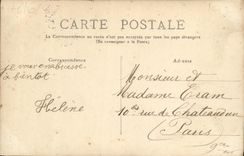 CARTE POSTALE
La Correspondance au recto n'est pas acceptée par tous les pays étrangers
(Se renseigner à la Poste)
Correspondance
Adresse
je vous embrasse
à bientôt
Hélène
Monsieur et
Madame Eram
10 bis rue de Chateaudun
Paris